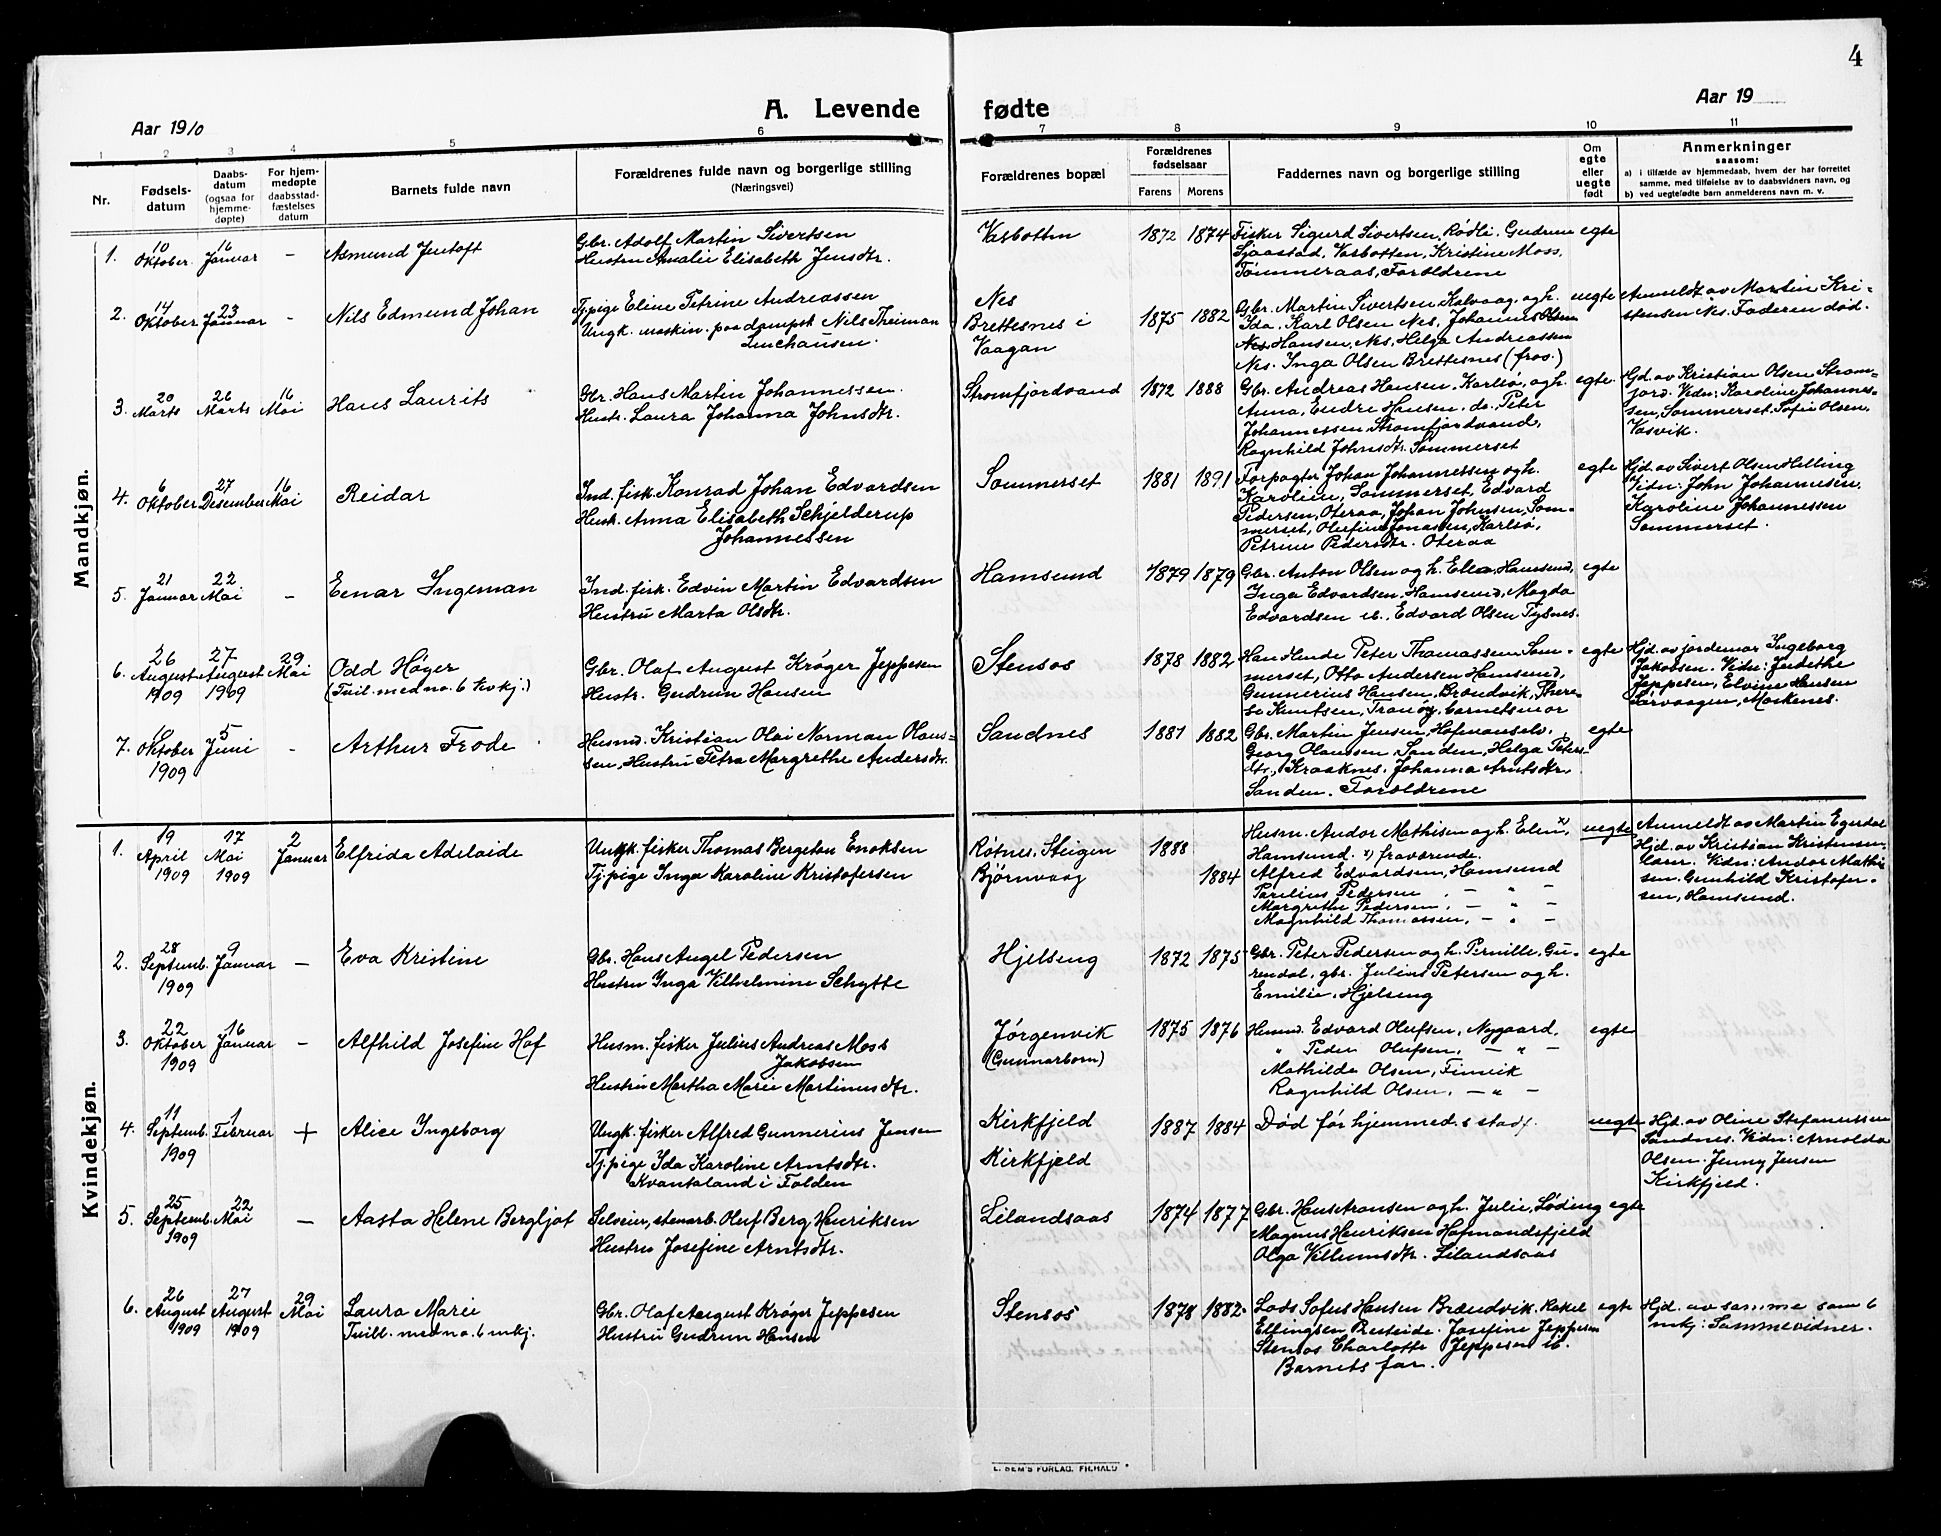 4
Aar 1910
A. Levende fødte
Aar 19
1 2 3 4 5 6 7 8 9 10 11
Nr.
Fødsels-
datum
Daabs-
datum
(ogsaa for
hjemme-
døpte)
For hjem-
medøpte
daabsstad-
fæstelses
datum
Barnets fulde navn
Forældrenes fulde navn og borgerlige stilling
(Næringsvei)
Forældrenes bopæl
Forældrenes
fødselsaar
Farens Morens
Faddernes navn og borgerlige stilling
Om
egte
eller
uegte
født
Anmerkninger
saasom:
a) i tilfælde av hjemmedaab, hvem der har forrettet
samme, med tilføielse av to daabsvidners navn, og
b) ved uegtefødte barn anmelderens navn m. v.
Mandkjøn.
1. 10 Oktober 16 Januar – Asmund Jentoft
Gbr. Adolf Martin Sivertsen
Hustru Amalie Elisabeth Jensdtr.
Vasbotten 1872 1874
Fisker Sigurd Sivertsen, Rødli, Gudrun
Sjaastad, Vasbotten, Kristine Moss,
Tømmeraas, Forældrene
egte
2. 14 Oktober 23 Januar – Nils Edmund Johan
Tj.pige Eline Petrine Andreassen
Ungk. maskin. paa dampsk. Nils Theiman
Nes
Brettesnes i
Vaagan
1875 1882
Gbr. Martin Sivertsen Kalvaag, og h.
Ida, Karl Olsen Nes, Johannes Olsen
Nes Hansen, Nes, Helga Andreassen
Nes. Inga Olsen Brettesnes (frav.)
uegte
Anmeldt av Martin Kri-
stensen Nes. Faderen død.
3. 20 Marts 26 Marts 16 Mai Hans Laurits
Gbr. Hans Martin Johannessen.
Hustr. Laura Johanna Johnsdtr.
Strømfjordvand 1872 1888
Gbr. Andreas Hansen, Karlsø, og h.
Anna, Endre Hansen, do. Peter
Johannessen Strømfjordvand,
Ragnhild Johnsdtr. Sommerset
egte
Hjd. av Kristian Olsen Strøm-
jord. Vidn: Karoline Johannes-
sen, Sommerset, Sofie Olsen,
Vasvik.
4. 6 Oktober 27 Desember 16 Mai Reidar
Ind. fisk. Konrad Johan Edvardsen
Husk. Anna Elisabeth Schjelderup
Johannessen
Sommerset 1881 1891
Forpagter Johan Johannessen og h.
Karoline, Sommerset, Edvard
Pedersen, Oteraa, Johan Johnsen, Som-
merset, Olufine Jonassen, Karlsø,
Petrine Pedersdtr. Oteraa
egte
Hjd. av Sivert Olsen Helling
Vidn: John Johannesen,
Karoline Johannessen
Sommerset.
5. 21 Januar 22 Mai – Einar Ingeman
Ind. fisk. Edvin Martin Edvardsen
Hustru Marta Olsdtr.
Hamsund 1879 1879
Gbr. Anton Olsen og h. Elea, Hamsund,
Inga Edvardsen, Hamsund, Magda
Edvardsen ib., Edvard Olsen Tysnes.
egte
6. 26 August 1909 27 August 1909 29 Mai Odd Høyer
(Tvil. med no. 6 kvkj.)
Gbr. Olaf August Krøger Jeppesen
Hustr. Gudrun Hansen
Stensos 1878 1882
Handlende Peter Thomassen Som-
merset, Otto Andersen Hamsund,
Gunnerius Hansen, Brændvik, There-
se Knutsen, Tranøy, barnets mor
egte
Hjd. av jordemor Ingeborg
Jakobsen. Vidn: Judithe
Jeppesen, Elvine Hansen
Sørvaagen, Moskenes.
7. 1 Oktober 1909 5 Juni – Arthur Frode
Husmd. Kristian Olai Norman Olaus-
sen, Hustru Petra Margrethe Andersdtr.
Sandnes 1881 1882
Gbr. Martin Jensen, Hofmansels.
Georg Olaussen Sanden, Helga Peters-
dtr., Kraaknes, Johanna Arntsdtr,
Sanden. Forældrene
egte
Kvindekjøn.
1. 19 April 1909 17 Mai 1909 2 Januar Elfrida Adelaide
Ungk. fisker Thomas Bergeton Enoksen
Tj.pige Inga Karoline Kristofersen
Røtnes, Steigen 1888
Bjørnvaag 1884
Husm. Andor Mathisen og h. Elen x),
Hamsund. x) fraværende.
Alfred Edvardsen, Hamsund
Parelius Pedersen, – " –
Margrethe Pedersen, – " –
Magnhild Thomassen, – " –
uegte
Anmeldt av Martin Egerdal
Hjd. av Kristian Kristensen
Vidn: Andor Mathi-
sen, Gunhild Kristofer-
sen, Hamsund.
2. 28 Septemb. 1909 9 Januar – Eva Kristine
Gbr. Hans Angel Pedersen
Hustru Inga Vilhelmine Schytte
Hjelseng 1872 1875
Gbr. Peter Pedersen og h. Pernille, Gu-
rendal, gbr. Julius Petersen og h.
Emilie, Hjelseng
egte
3. 22 Oktober 1909 16 Januar – Alfhild Josefine Hof
Husm. fisker Julius Andreas Moss
Jakobsen
Hustru Martha Marie Martinusdtr.
Jørgenvik
(Gunnarbom)
1875 1876
Husmd. Edvard Olufsen, Nygaard,
" Peder Olufsen, – " –
Mathilde Olsen, Finvik
Ragnhild Olsen, – " –
egte
4. 11 Septemb. 1909 1 Februar + Alice Ingeborg
Ungk. fisker Alfred Gunnerius Jensen
Tj.pige Ida Karoline Arntsdtr.
Kvantoland i Folden
Kirkfjeld
Kirkfjeld
1887 1884
Død før hjemmed.s stadf.
uegte
Hjd. av Oline Stefanussen
Sandnes. Vidn: Arnolda
Olsen. Jenny Jensen
Kirkfjeld.
5. 25 Septemb. 1909 22 Mai – Aasta Helene Bergljot
Selveier, stenarb. Oluf Berg Henriksen
Hustru Josefine Arntsdtr.
Lilandsaas 1874 1877
Gbr. Hans Hansen og h. Julie, Løding
Magnus Henriksen Hofmandsfjeld
Olga Villumsdtr. Lilandsaas
egte
6. 26 August 1909 27 August 1909 29 Mai Laura Marie
Tvill. med no. 6 mkj.
Gbr. Olaf August Krøger Jeppesen
Hustru Gudrun Hansen
Stensos 1878 1882
Lods Sofus Hansen Brændvik, Rakel
Elfingsen Presteide. Josefine Jeppesen
Stensos Charlotte Jeppesen ib.
Barnets far.
egte
Hjd. av samme som 6
mkj: Samme vidner.
E. SEM'S FORLAG, FR.HALD